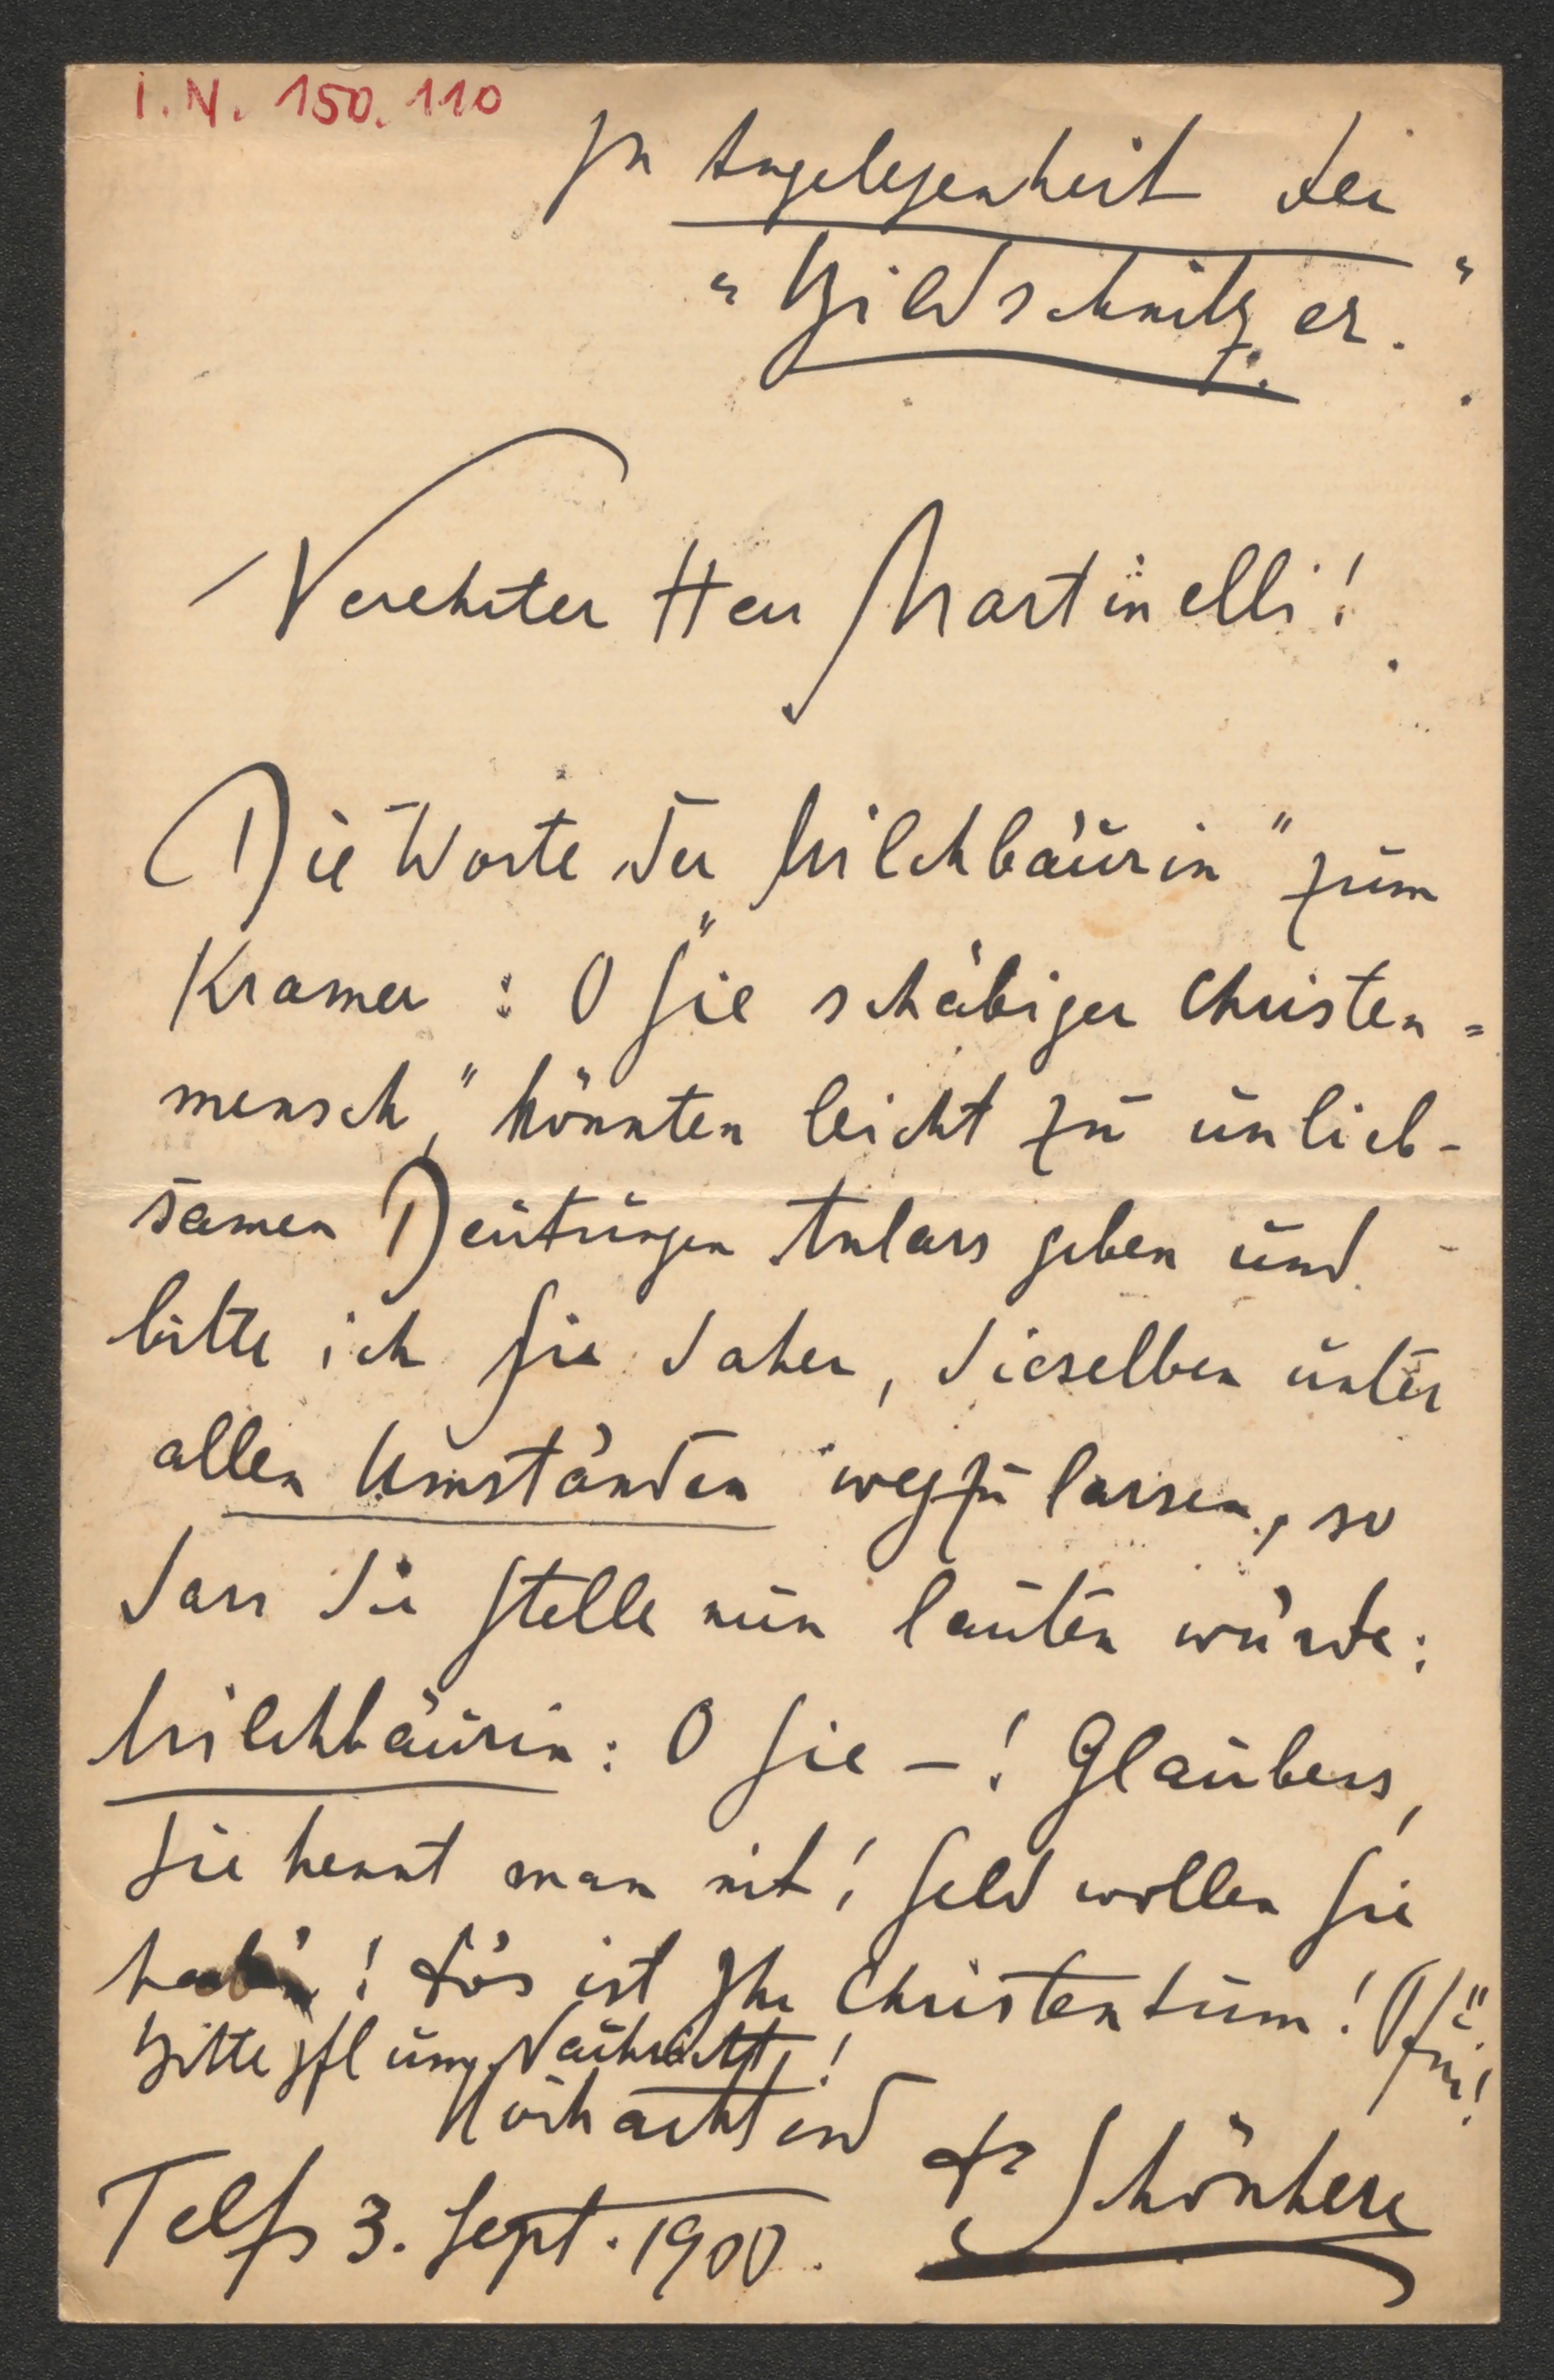 I.N. 150.110
In Angelegenheit der
"Bildschnitzer."
Verehrter Herr Martinelli!
Die Worte der Milchbäurin" zum
Kramer: "O Sie schäbiger Christen=
mensch," könnten leicht zu unlieb-
samen Deutungen Anlass geben und
bitte ich Sie daher, dieselben unter
allen Umständen wegzulassen, so
dass die Stelle nun lauten würde:
Milchbäurin: O Sie –! Glaubens,
Sie kennt man nit! Geld wollen Sie
hab'n! Dös ist Ihr Christentum!
Bitte pfl umg. Nachricht!
Hochachtend
Dr Schönherr
Telfs 3. Sept. 1900.